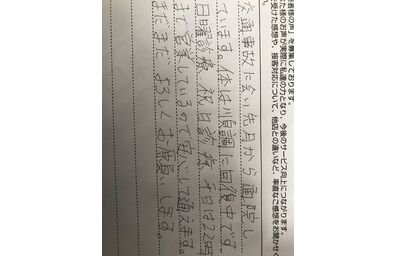 者様の声」を募集しております。
な様のお声が実際に私達の力となり、今後のサービス向上につながります。
受けた感想や、接客対応について、他店との違いなど、率直なご感想をお聞かせく
交通事故に会い先月から通院し
ています。体は順調に回復中です。
日曜診療、祝日診療、平日は22時
まで営業しているので安心して通えます。
まだまだよろしくお願いします。